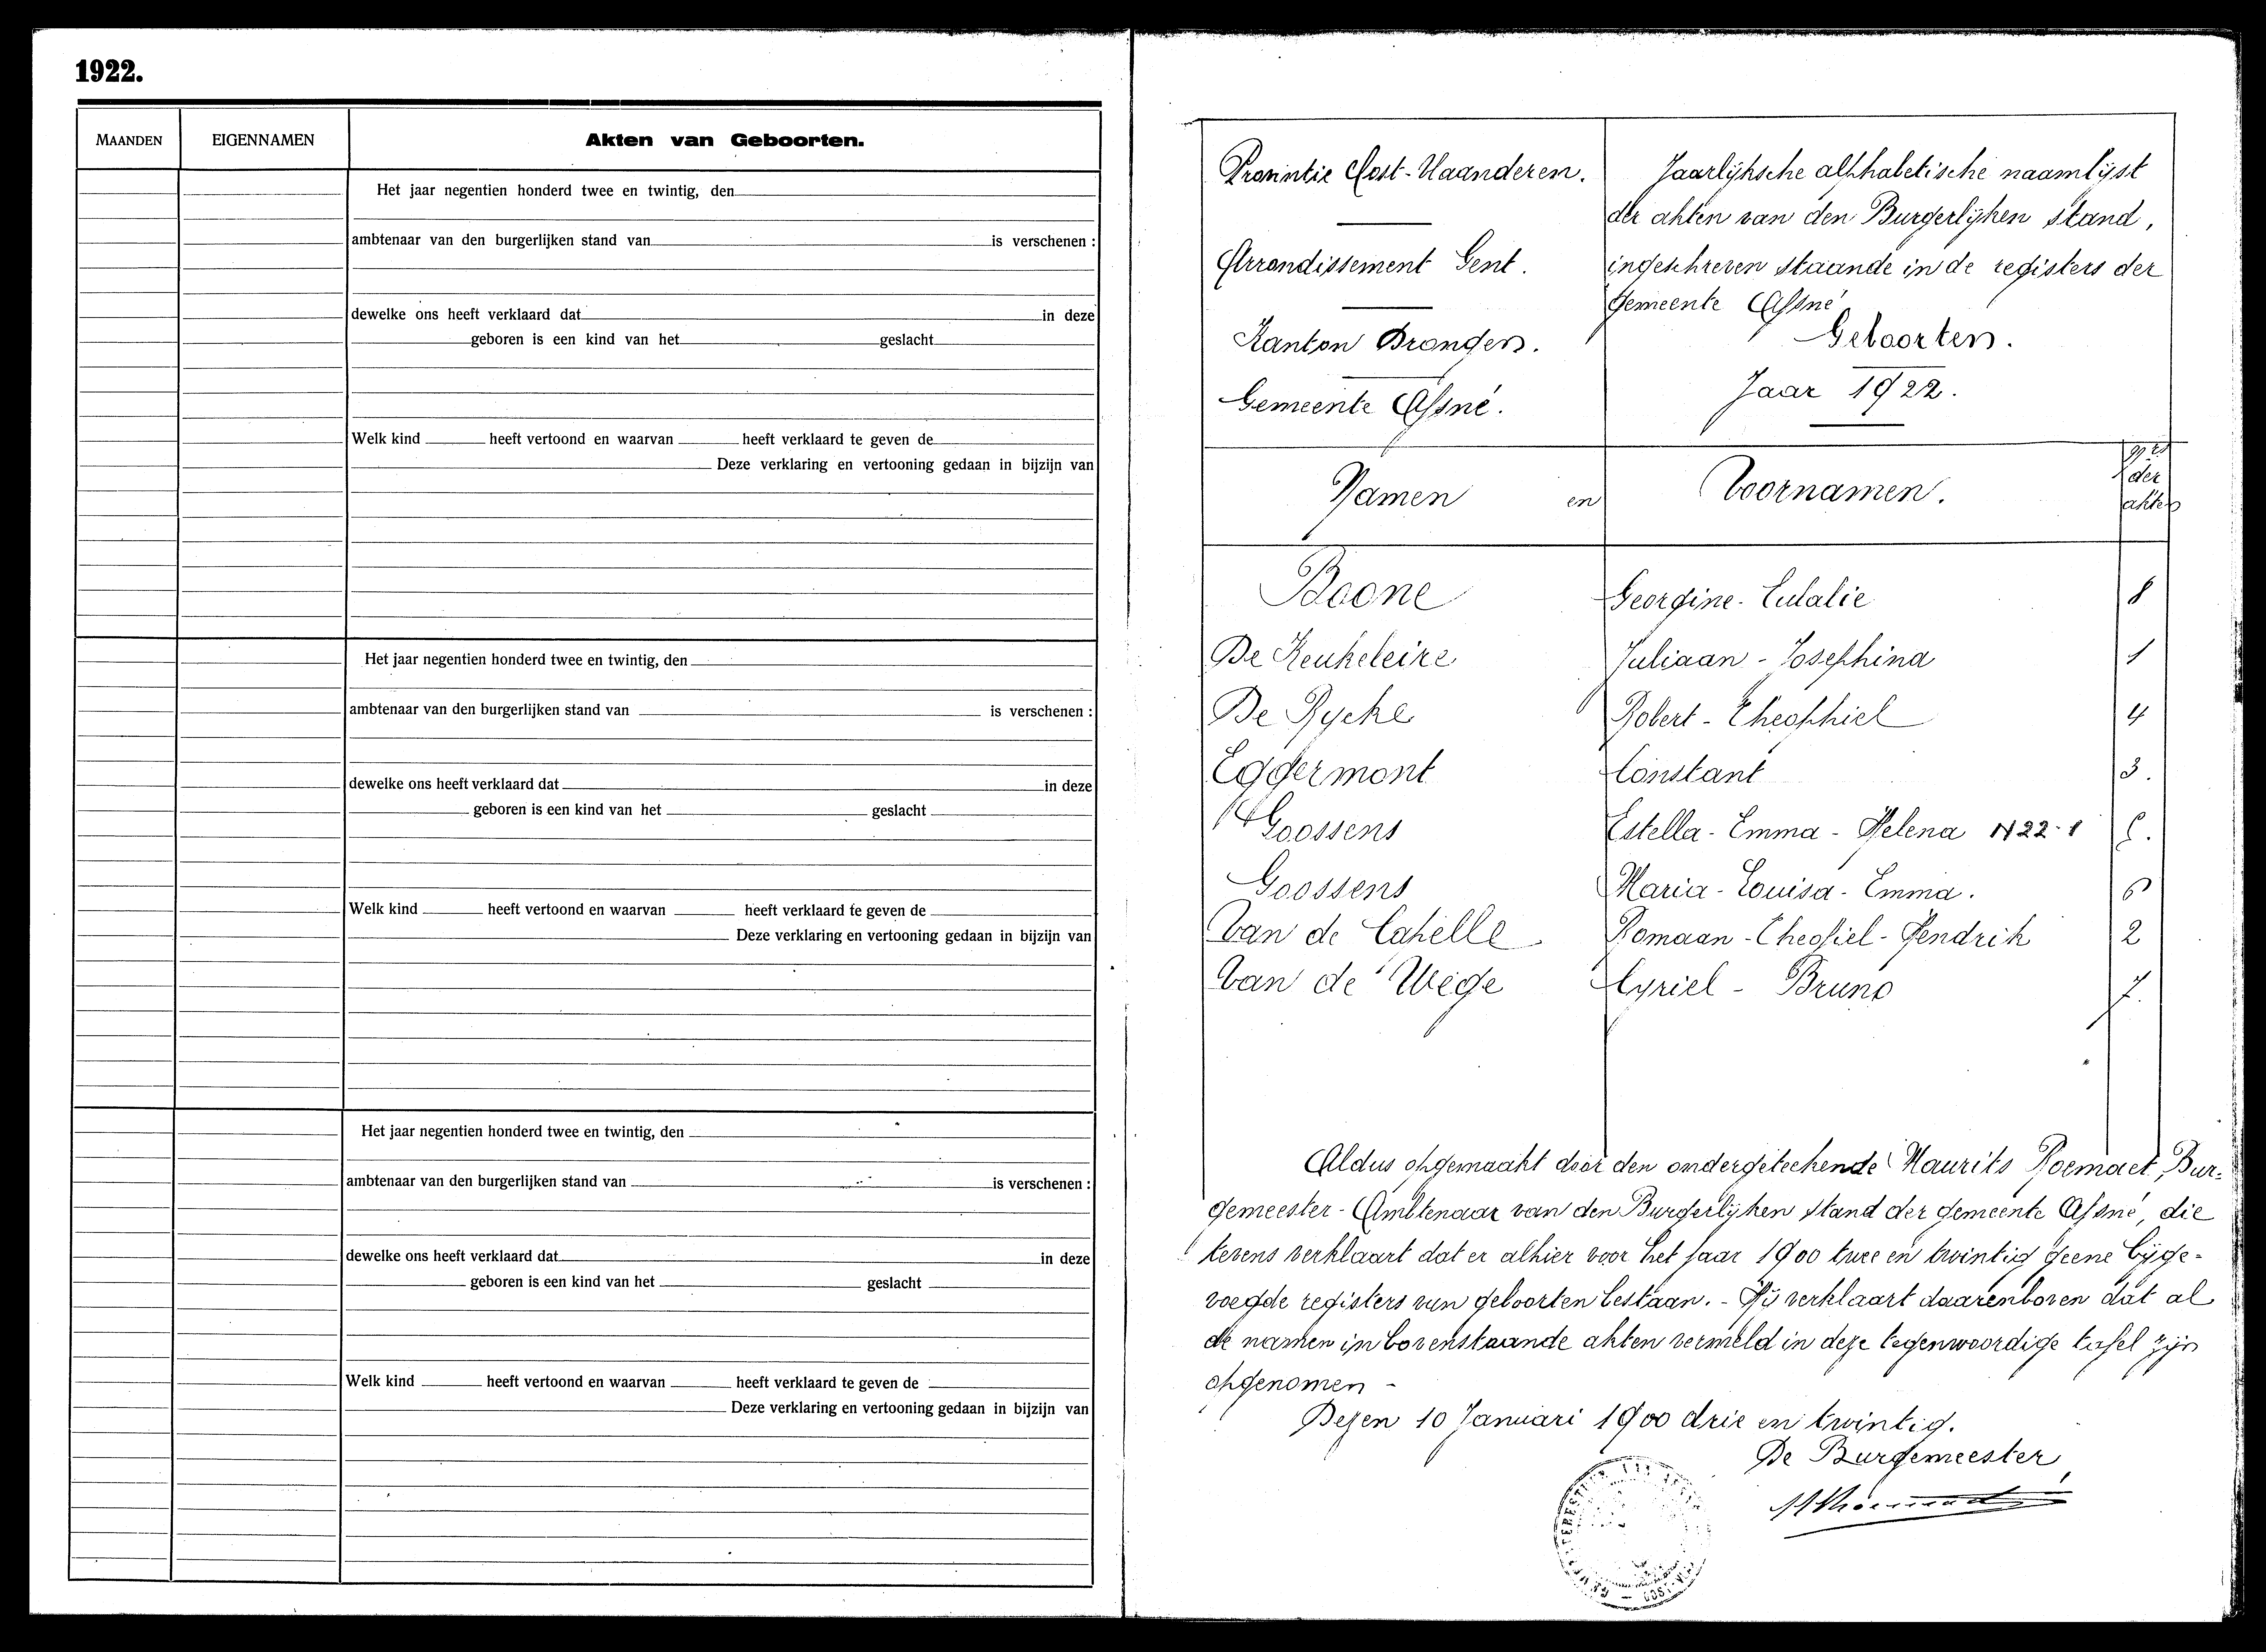 1922.
MAANDEN
EIGENNAMEN
Akten van Geboorten.
Het jaar negentien honderd twee en twintig, den
ambtenaar van den burgerlijken stand van is verschenen :
dewelke ons heeft verklaard dat in deze
geboren is een kind van het geslacht
Welk kind heeft vertoond en waarvan heeft verklaard te geven de
Deze verklaring en vertooning gedaan in bijzijn van
Het jaar negentien honderd twee en twintig, den
ambtenaar van den burgerlijken stand van is verschenen :
dewelke ons heeft verklaard dat in deze
geboren is een kind van het geslacht
Welk kind heeft vertoond en waarvan heeft verklaard te geven de
Deze verklaring en vertooning gedaan in bijzijn van
Het jaar negentien honderd twee en twintig, den
ambtenaar van den burgerlijken stand van is verschenen :
dewelke ons heeft verklaard dat in deze
geboren is een kind van het geslacht
Welk kind heeft vertoond en waarvan heeft verklaard te geven de
Deze verklaring en vertooning gedaan in bijzijn van
Provintie Oost-Vlaanderen.
Arrondissement Gent.
Kanton
Gemeente Afsné.
Jaarlijksche alphabetische naamlijst
der akten van den Burgerlijken stand,
ingeschreven staande in de registers der
gemeente Afsné
Geboorten.
Jaar 1922.
Namen en Voornamen.
der
akten
Boone Georgine-Eulalie 8
De Keukeleire Juliaan-Josephina 1
De Rycke Robert-Theophiel 4
Eggermont Constant 3.
Goossens Estella-Emma-Helena
Goossens Maria-Louisa-Emma. 6
Van de Capelle Romaan-Theofiel-Hendrik 2
Van de Wege Cyriel - Bruno 7.
Aldus opgemaakt door den ondergeteekende Maurits Roemaet, Bur-
gemeester-Ambtenaar van den Burgerlijken stand der gemeente Afsné, die
tevens verklaart dat er alhier voor het jaar 1900 twee en twintig geene bijge-
voegde registers van geboorten bestaan. - Hij verklaart daarenboven dat al
de namen in bovenstaande akten vermeld in deze tegenwoordige tafel zijn
opgenomen -
Dezen 10 Januari 1900 drie en twintig.
De Burgemeester,